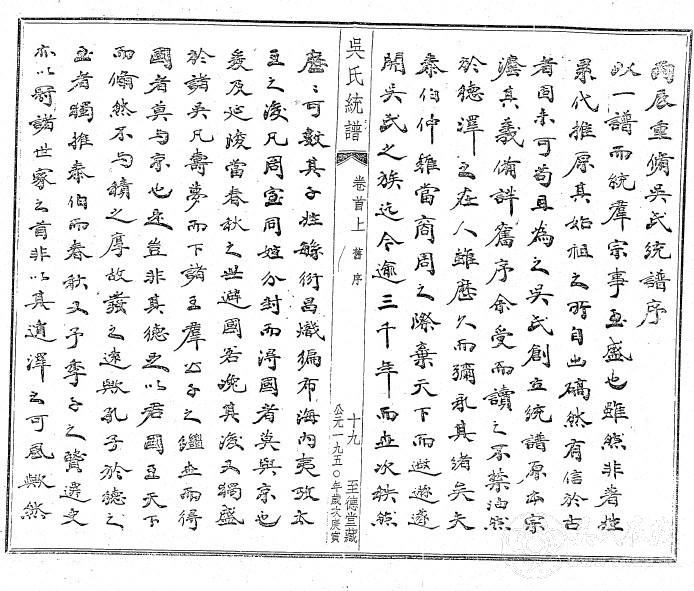 丙辰重脩吳氏統譜序
以一譜而統羣宗事至盛也雖然非著姓
累代推原其始祖之所自出確然有信於古
者固未可苟且為之吳氏創立統譜原本宗
其義備詳舊序余受而讀之不禁油然
於德澤之在人雖歷久而彌永其緒矣夫
泰伯仲雍當商周之際棄天下而遯遂
開吳氏之族迄今逾三千年而世次秩然
吳氏統譜
卷首上 舊序
十九 至德堂藏
公元一九五〇年歲次庚寅
歷〻可數其子姓繇衍昌熾徧布海內夷攷太
王之後凡周室同姓分封而得國者莫與京也
爰及延陵當春秋之世避國名晚其後又獨盛
於諸吳凡壽夢而下諸王羣公子之繼世而得
國者莫与京也是豈非其德足以君國王天下
而翛然不与積之厚故發之遠歟孔子於德之
至者獨推泰伯而春秋又予季子之賢遷史
亦以冠諸世家之首非以其遺澤之可風歟然